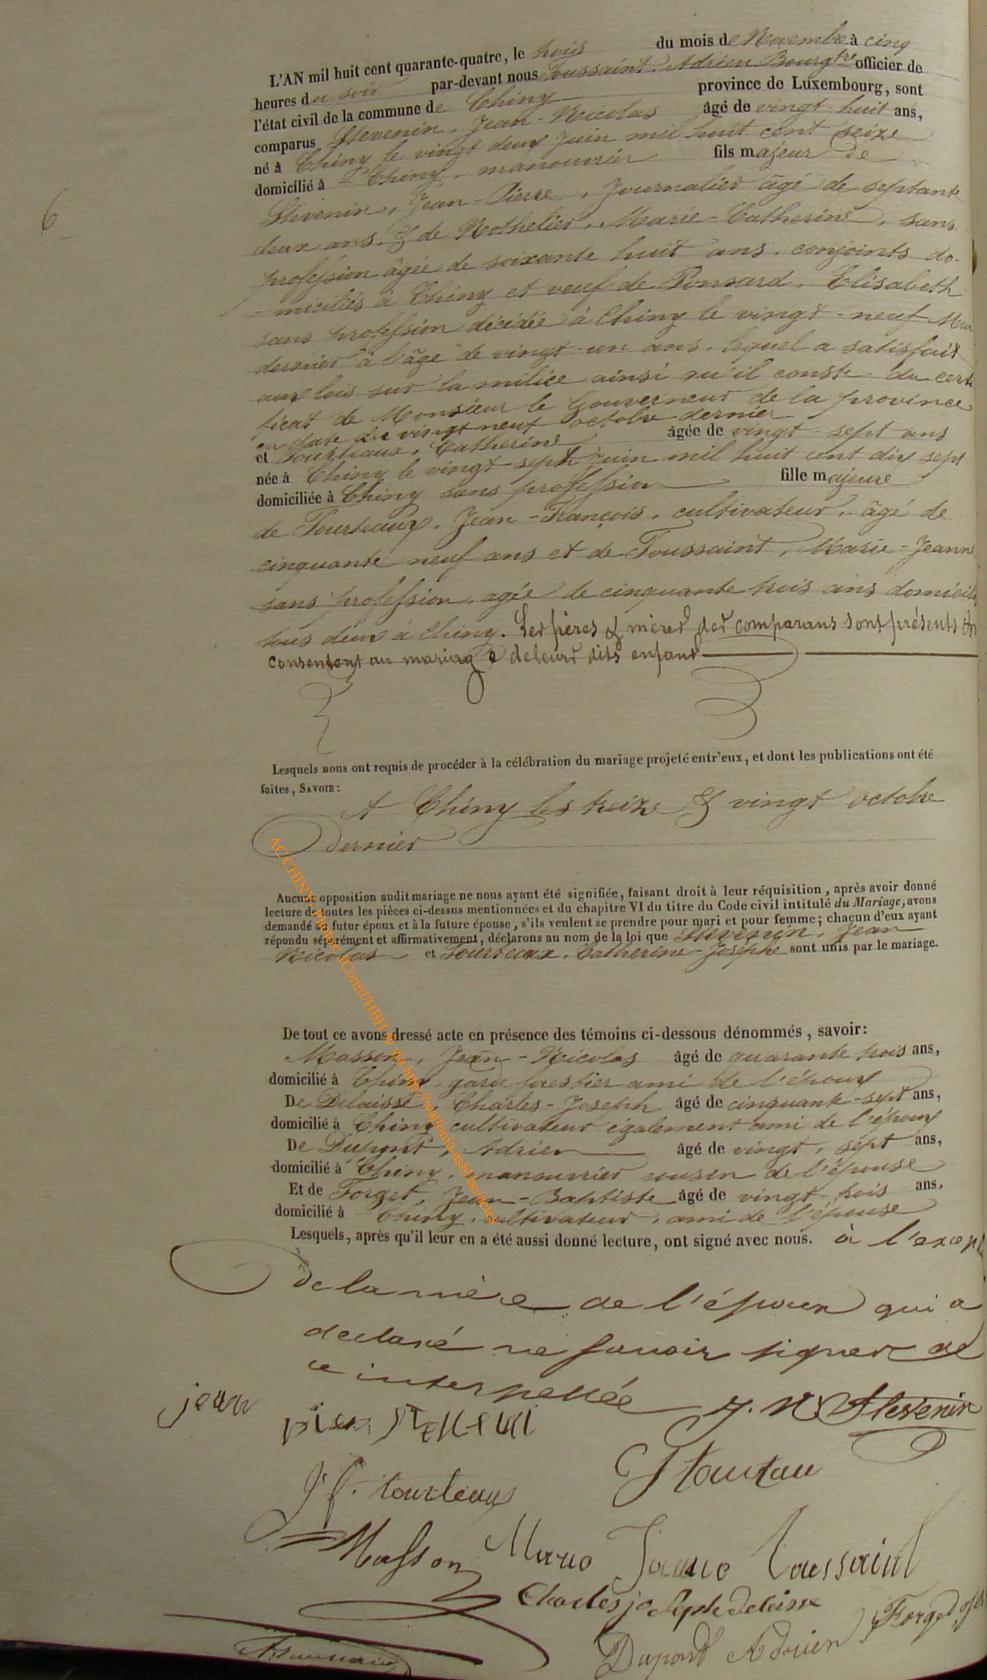 6
L'AN mil huit cent quarante-quatre, le trois du mois de Novembre à cinq
heures du soir par-devant nous Toussaint, Adrien Bourgtre officier de
l'état civil de la commune de Chiny province de Luxembourg, sont
comparus Stevenin, Jean-Nicolas âgé de vingt-huit ans,
né à Chiny le vingt deux Juin mil huit cent seize
domicilié à Chiny, manouvrier fils majeur de
Stevenin, Jean-Pierre, Journalier âgé de septante
deux ans & de Rothelier, Marie-Catherine, sans
profession âgée de soixante huit ans, conjoints do-
-miciliés à Chiny et veuf de Ponsard, Elisabeth
sans profession décédée à Chiny le vingt-neuf
dernier à l'âge de vingt-un ans, lequel a satisfait
aux lois sur la milice ainsi qu'il conste du certi
ficat de Monsieur le Gouverneur de la province
en date du vingt neuf octobre dernier
et Tourteaux, Catherine âgée de vingt-sept ans
née à Chiny le vingt-sept juin mil huit cent dix sept
domiciliée à Chiny sans profession fille majeure
de Tourteaux, Jean-François, cultivateur, âgé de
cinquante neuf ans et de Toussaint, Marie-Jeanne
sans profession, agée de cinquante trois ans domicili
tous deux à Chiny. Les pères & mères des comparans sont présents &
consentent au mariage de leurs dits enfans
Lesquels nous ont requis de procéder à la célébration du mariage projeté entr'eux, et dont les publications ont été
faites, SAVOIR:
A Chiny les treize & vingt octobre
dernier
Aucune opposition audit mariage ne nous ayant été signifiée, faisant droit à leur réquisition, après avoir donné
lecture de toutes les pièces ci-dessus mentionnées et du chapitre VI du titre du Code civil intitulé du Mariage, avons
demandé au futur époux et à la future épouse, s'ils veulent se prendre pour mari et pour femme; chacun d'eux ayant
répondu séparément et affirmativement, déclarons au nom de la loi que Stevenin, Jean
Nicolas et Tourteaux, Catherine-Josephe sont unis par le mariage.
De tout ce avons dressé acte en présence des témoins ci-dessous dénommés, savoir:
Masson, Jean-Nicolas âgé de quarante trois ans,
domicilié à Chiny, garde forestier ami de l'époux
De Delaisse, Charles-Joseph âgé de cinquante-sept ans,
domicilié à Chiny cultivateur également ami de l'époux
De Dupont, Adrien âgé de vingt, sept ans,
domicilié à Chiny, manouvrier cousin de l'épouse
Et de Forget, Jean-Baptiste âgé de vingt-trois ans,
domicilié à Chiny, cultivateur, ami de l'épouse
Lesquels, après qu'il leur en a été aussi donné lecture, ont signé avec nous. à l'excep
de la mère de l'époux qui a
declaré ne savoir signer de
ce interpellée J. N. Stevenin
jean pier
J. f. tourteaux
Masson Marie Jeanne Toussaint
Charles joseph delaisse
Dupont Adrien Forget